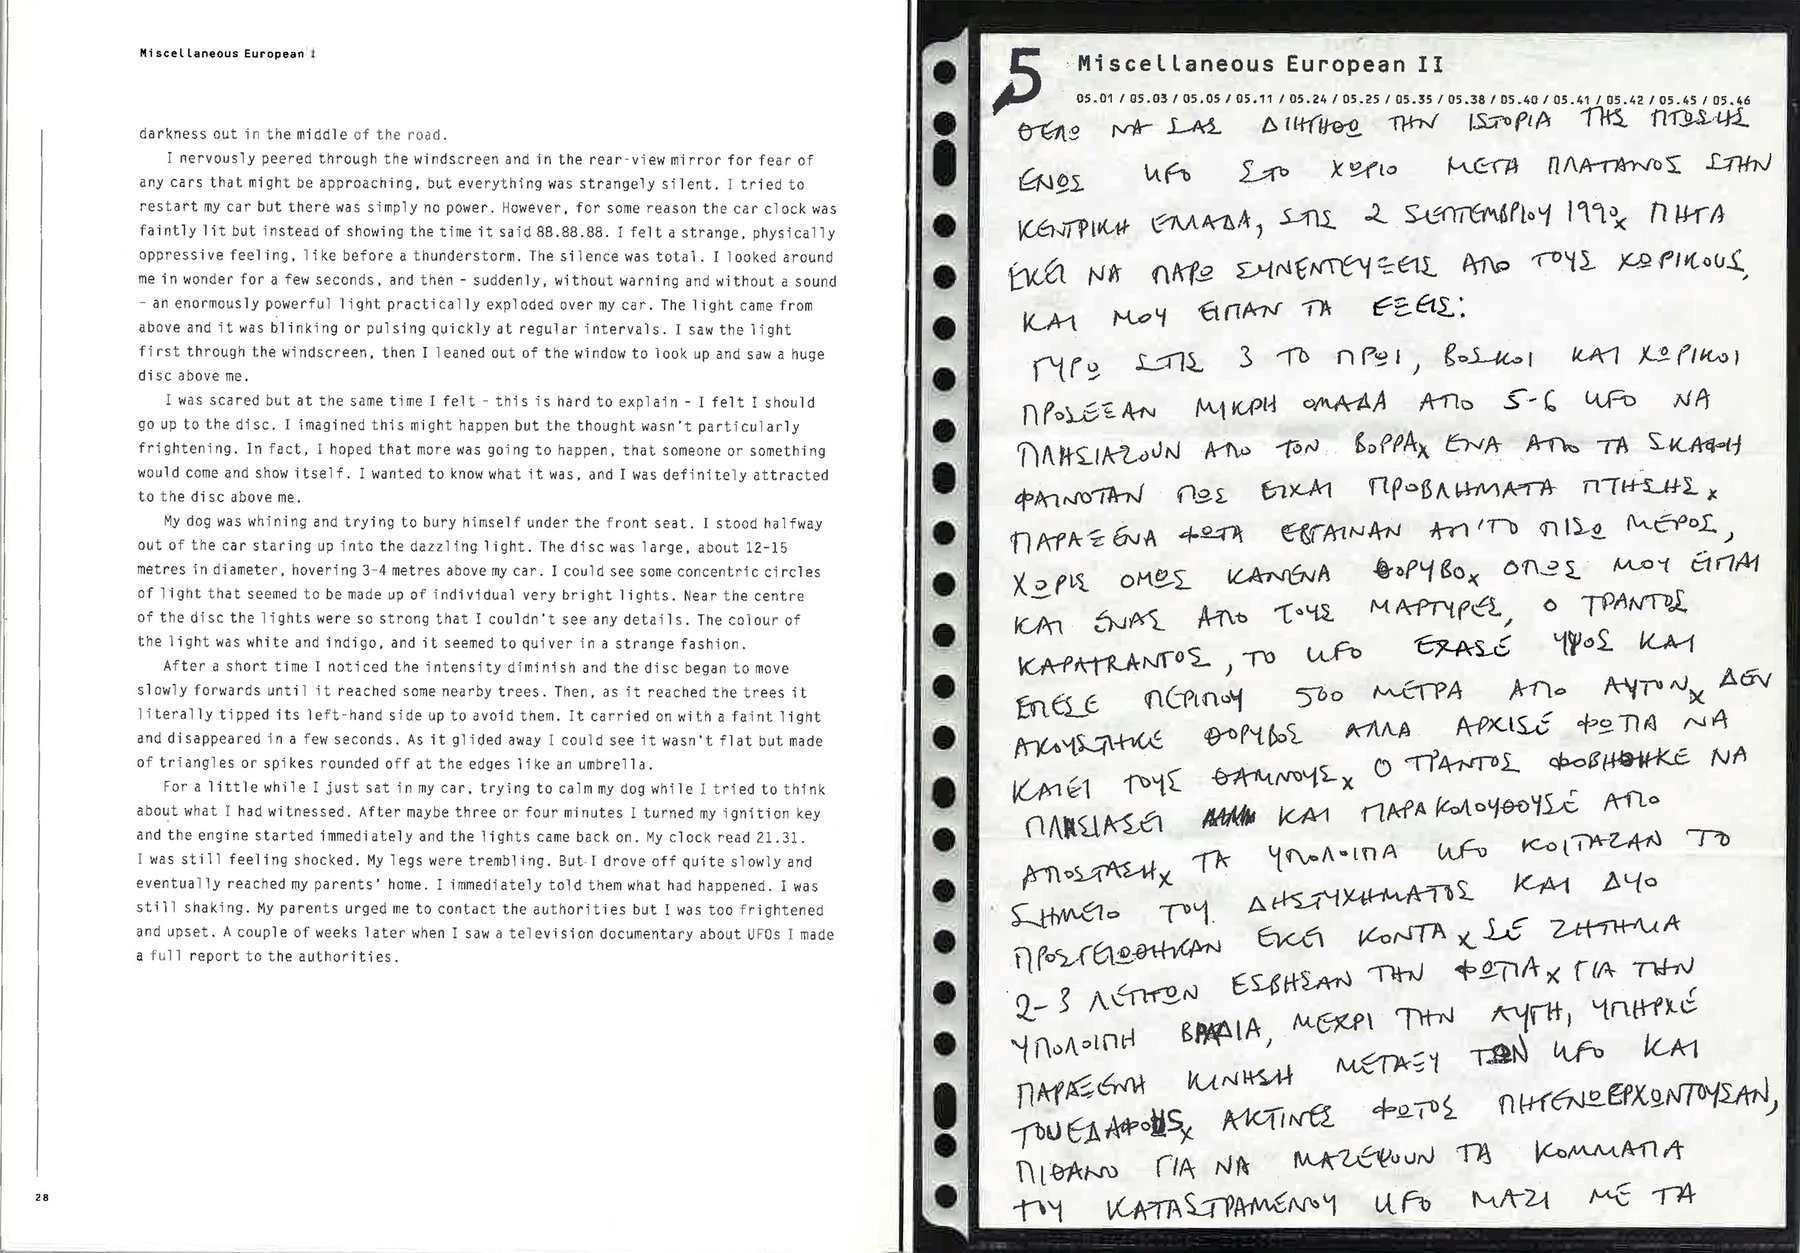 Miscellaneous European I
darkness out in the middle of the road.
I nervously peered through the windscreen and in the rear-view mirror for fear of
any cars that might be approaching, but everything was strangely silent. I tried to
restart my car but there was simply no power. However, for some reason the car clock was
faintly lit but instead of showing the time it said 88.88.88. I felt a strange, physically
oppressive feeling, like before a thunderstorm. The silence was total. I looked around
me in wonder for a few seconds, and then - suddenly, without warning and without a sound
- an enormously powerful light practically exploded over my car. The light came from
above and it was blinking or pulsing quickly at regular intervals. I saw the light
first through the windscreen, then I leaned out of the window to look up and saw a huge
disc above me.
I was scared but at the same time I felt - this is hard to explain - I felt I should
go up to the disc. I imagined this might happen but the thought wasn't particularly
frightening. In fact, I hoped that more was going to happen, that someone or something
would come and show itself. I wanted to know what it was, and I was definitely attracted
to the disc above me.
My dog was whining and trying to bury himself under the front seat. I stood halfway
out of the car staring up into the dazzling light. The disc was large, about 12-15
metres in diameter, hovering 3-4 metres above my car. I could see some concentric circles
of light that seemed to be made up of individual very bright lights. Near the centre
of the disc the lights were so strong that I couldn't see any details. The colour of
the light was white and indigo, and it seemed to quiver in a strange fashion.
After a short time I noticed the intensity diminish and the disc began to move
slowly forwards until it reached some nearby trees. Then, as it reached the trees it
literally tipped its left-hand side up to avoid them. It carried on with a faint light
and disappeared in a few seconds. As it glided away I could see it wasn't flat but made
of triangles or spikes rounded off at the edges like an umbrella.
For a little while I just sat in my car, trying to calm my dog while I tried to think
about what I had witnessed. After maybe three or four minutes I turned my ignition key
and the engine started immediately and the lights came back on. My clock read 21.31.
I was still feeling shocked. My legs were trembling. But I drove off quite slowly and
eventually reached my parents' home. I immediately told them what had happened. I was
still shaking. My parents urged me to contact the authorities but I was too frightened
and upset. A couple of weeks later when I saw a television documentary about UFOs I made
a full report to the authorities.
28
5 Miscellaneous European II
05.01 / 05.03 / 05.05 / 05.11 / 05.24 / 05.25 / 05.35 / 05.38 / 05.40 / 05.41 / 05.42 / 05.45 / 05.46
ΘΕΛΩ ΝΑ ΣΑΣ ΔΙΗΓΗΘΩ ΤΗΝ ΙΣΤΟΡΙΑ ΤΗΣ ΠΤΩΣΗΣ
ΕΝΩΣ UFO ΣΤΟ ΧΩΡΙΟ ΜΕΓΑ ΠΛΑΤΑΝΟΣ ΣΤΗΝ
ΚΕΝΤΡΙΚΗ ΕΛΛΑΔΑ, ΣΤΙΣ 2 ΣΕΠΤΕΜΒΡΙΟΥ 1990x ΠΗΓΑ
ΕΚΕΙ ΝΑ ΠΑΡΩ ΣΥΝΕΝΤΕΥΞΕΙΣ ΑΠΟ ΤΟΥΣ ΧΩΡΙΚΟΥΣ,
ΚΑΙ ΜΟΥ ΕΙΠΑΝ ΤΑ ΕΞΕΙΣ:
ΓΥΡΩ ΣΤΙΣ 3 ΤΟ ΠΡΩΙ, ΒΟΣΚΟΙ ΚΑΙ ΧΩΡΙΚΟΙ
ΠΡΟΣΕΞΑΝ ΜΙΚΡΗ ΟΜΑΔΑ ΑΠΟ 5-6 UFO ΝΑ
ΠΛΗΣΙΑΖΟΥΝ ΑΠΟ ΤΟΝ ΒΟΡΡΑx ΕΝΑ ΑΠΟ ΤΑ ΣΚΑΦΗ
ΦΑΙΝΟΤΑΝ ΠΩΣ ΕΙΧΑΙ ΠΡΟΒΛΗΜΑΤΑ ΠΤΗΣΗΣx
ΠΑΡΑΞΕΝΑ ΦΩΤΑ ΕΒΓΑΙΝΑΝ ΑΠ'ΤΟ ΠΙΣΩ ΜΕΡΟΣ,
ΧΩΡΙΣ ΟΜΩΣ ΚΑΝΕΝΑ ΘΟΡΥΒΟx ΟΠΩΣ ΜΟΥ ΕΙΠΑΙ
ΚΑΙ ΕΝΑΣ ΑΠΟ ΤΟΥΣ ΜΑΡΤΥΡΕΣ, Ο ΤΡΑΝΤΟΣ
ΚΑΡΑΤRΑΝΤΟΣ, ΤΟ UFO ΕΧΑΣΕ ΥΨΟΣ ΚΑΙ
ΕΠΕΣΕ ΠΕΡΙΠΟΥ 500 ΜΕΤΡΑ ΑΠΟ ΑΥΤΟΝx ΔΕΝ
ΑΚΟΥΣΤΗΚΕ ΘΟΡΥΒΟΣ ΑΛΛΑ ΑΡΧΙΣΕ ΦΩΤΙΑ ΝΑ
ΚΑΙΕΙ ΤΟΥΣ ΘΑΜΝΟΥΣx Ο ΤΡΑΝΤΟΣ ΦΟΒΗΘΗΚΕ ΝΑ
ΠΛΗΣΙΑΣΕΙ ΚΑΙ ΠΑΡΑΚΟΛΟΥΘΟΥΣΕ ΑΠΟ
ΑΠΟΣΤΑΣΗx ΤΑ ΥΠΟΛΟΙΠΑ UFO ΚΟΙΤΑΖΑΝ ΤΟ
ΣΗΜΕΙΟ ΤΟΥ ΔΗΣΤΥΧΗΜΑΤΟΣ ΚΑΙ ΔΥΟ
ΠΡΟΣΓΕΙΩΘΗΚΑΝ ΕΚΕΙ ΚΟΝΤΑx ΣΕ ΖΗΤΗΜΑ
2-3 ΛΕΠΤΩΝ ΕΣΒΗΣΑΝ ΤΗΝ ΦΩΤΙΑx ΓΙΑ ΤΗΝ
ΥΠΟΛΟΙΠΗ ΒΡΑΔΙΑ, ΜΕΧΡΙ ΤΗΝ ΑΥΓΗ, ΥΠΗΡΧΕ
ΠΑΡΑΞΕΝΗ ΚΙΝΗΣΗ ΜΕΤΑΞΥ ΤΩΝ UFO ΚΑΙ
ΤΟU ΕΔΑΦΟUSx ΑΚΤΙΝΕΣ ΦΩΤΟΣ ΠΗΓΕΝΩΕΡΧΩΝΤΟΥΣΑΝ,
ΠΙΘΑΝΟ ΓΙΑ ΝΑ ΜΑΖΕΨΟΥΝ ΤΑ ΚΟΜΜΑΤΙΑ
ΤΟΥ ΚΑΤΑΣΤΡΑΜΕΝΟΥ UFO ΜΑΖΙ ΜΕ ΤΑ